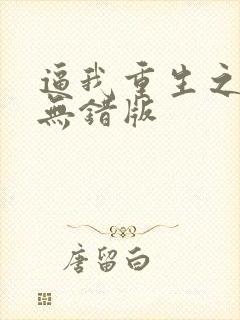 逼我重生之
無錯版
唐留白